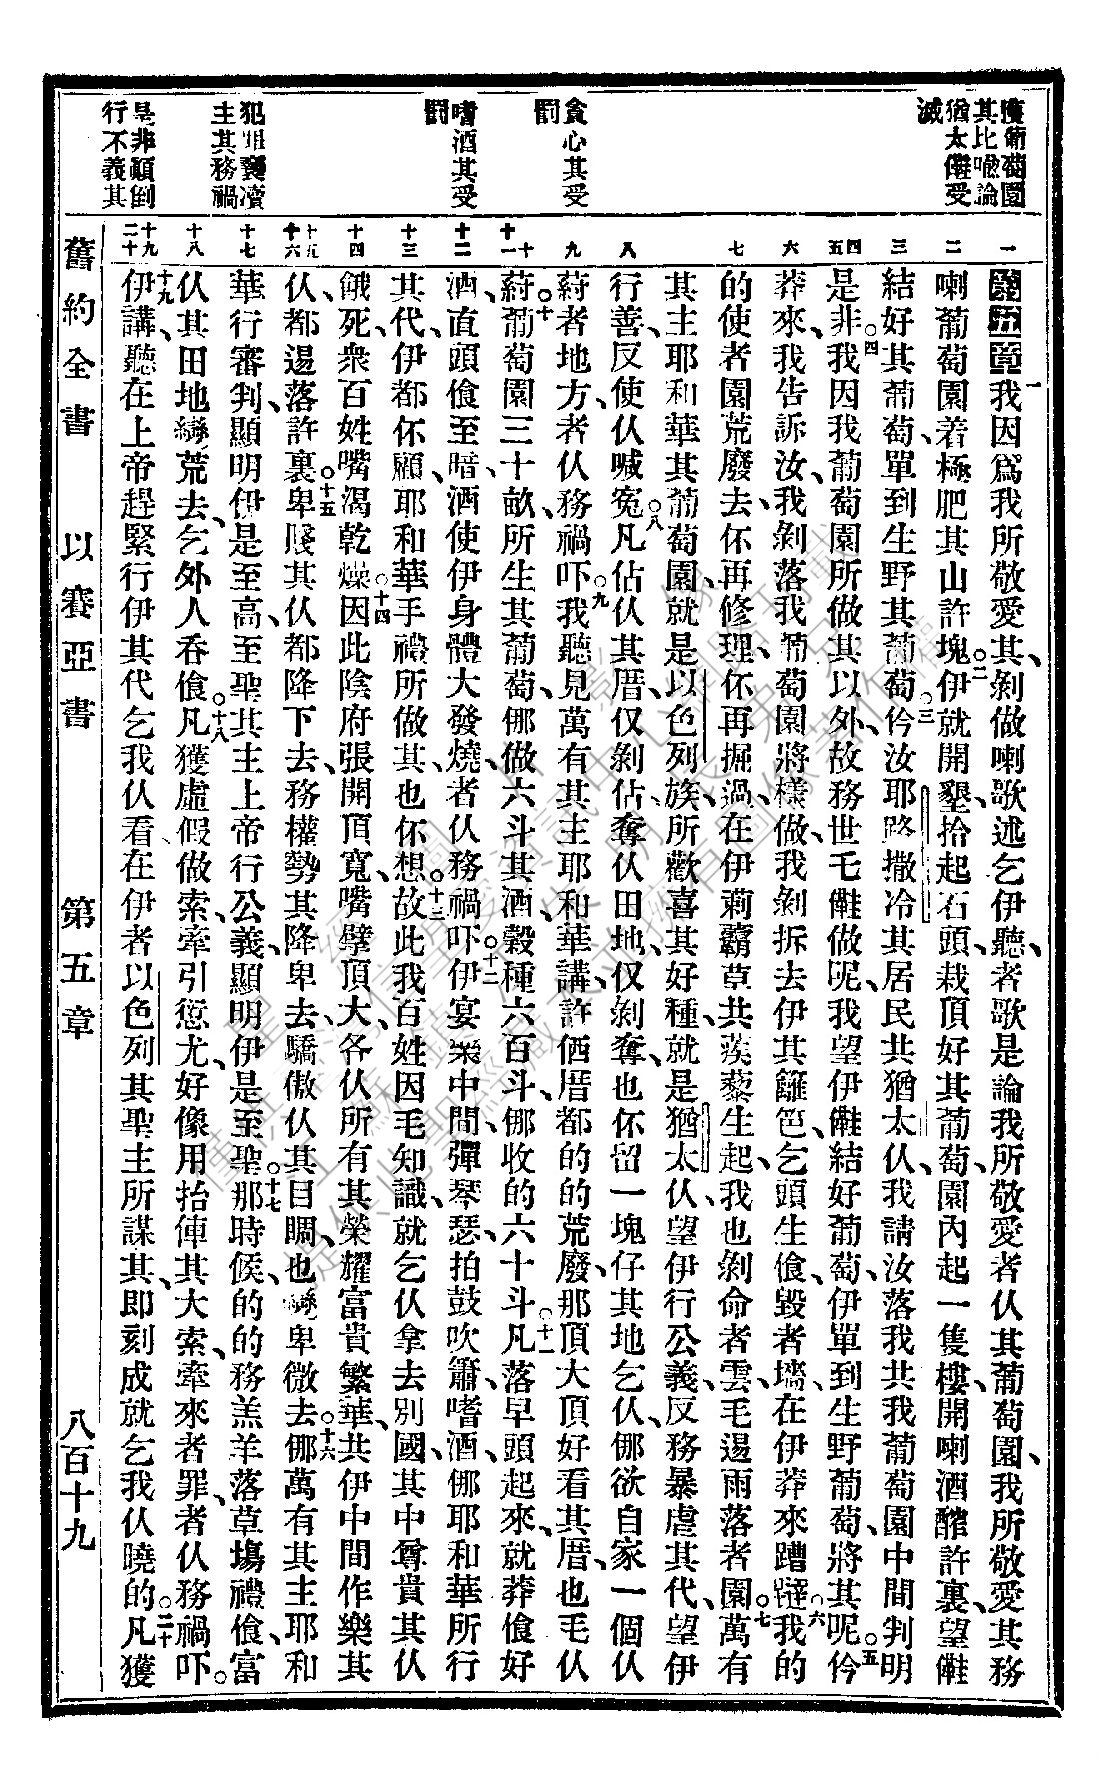 獲葡萄園
其比喩論
猶太儺受
滅
貪心其受
罰
嗜酒其受
罰
犯罪褻瀆
主其務禍
是非顚倒
行不義其
一
二
三
四
五
六
七
八
九
十
十一
十二
十三
十四
十五
十六
十七
十八
十九
二十
第五章一我因爲我所敬愛其、剝做喇歌述乞伊聽、者歌是論我所敬愛者仈其葡萄園、我所敬愛其務
喇葡萄園、着極肥其山許塊。二伊就開墾、抬起石頭、栽頂好其葡萄、園內起一隻樓、開喇酒醡許裏、望儺
結好其葡萄、單到生野其葡萄。三仱汝耶路撒冷其居民、共猶太仈、我請汝落我共我葡萄園中間判明
是非。四我因我葡萄園所做其以外、故務世乇儺做呢、我望伊儺結好葡萄、伊單到生野葡萄、將其呢。五仱
莽來、我告訴汝、我剝落我葡萄園將樣做、我剝拆去伊其籬笆、乞頭生飧、毀者墻、在伊莽來蹧躂。六我的
的使者園荒廢去、伓再修理、伓再掘過、在伊莿霸草共蒺藜生起、我也剝命者雲、毛逿雨落者園。七萬有
其主耶和華其葡萄園、就是以色列族、所歡喜其好種、就是猶太仈、望伊行公義、反務暴虐其代、望伊
行善、反使仈喊寃。八凡佔仈其厝、仅剝佔奪仈田地、仅剝奪、也伓留一塊仔其地乞仈、㑚欲自家一個仈
蒔者地方、者仈務禍吓。九我聽見萬有其主耶和華講、許㑚厝都的的荒廢、那頂大頂好看其厝、也毛仈
蒔。十葡萄園三十畝、所生其葡萄、㑚做六斗其酒、穀種六百斗、㑚收的六十斗。十一凡落早頭起來、就莽飧好
酒、直頭飧至暗、酒使伊身體大發燒、者仈務禍吓。十二伊宴樂中間、彈琴瑟、拍鼓吹簫、嗜酒、㑚耶和華所行
其代、伊都伓顧、耶和華手禮所做其、也伓想。十三故此我百姓因毛知識、就乞仈拿去別國、其中尊貴其仈
餓死、衆百姓嘴渴乾燥。十四因此陰府張開頂寬、嘴擘頂大、各仈所有其榮耀富貴繁華、共伊中間作樂其
仈、都逿落許裏。十五卑賤其仈、都降下去、務權勢其降卑去、驕傲仈其目睭、也𡅏卑微去。十六㑚萬有其主耶和
華行審判、顯明伊是至高、至聖其主上帝行公義、顯明伊是至聖。十七那時候、的的務羔羊落草塲禮飧、富
仈其田地𡅏荒去、乞外人吞飧。十八凡獲虛假做索、牽引愆尤、好像用抬俥其大索、牽來者罪、者仈務禍吓。
十九伊講、聽在上帝趕緊行伊其代、乞我仈看、在伊者以色列其聖主所謀其、卽刻成就、乞我仈曉的。二十凡獲
舊約全書　以賽亞書　第五章　八百十九